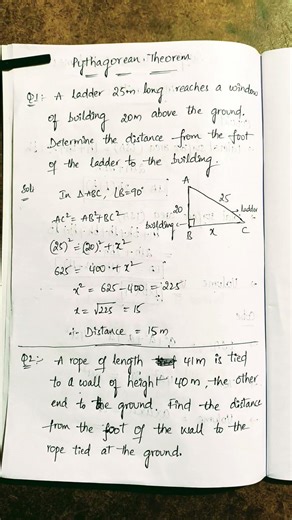 Pythagorean Theorem
Q1:- A ladder 25m long reaches a window
of building 20m above the ground.
Determine the distance from the foot
of the ladder to the building.
Sol: In ∆ABC, ∠B=90°
AC² = AB² + BC²
(25)² = (20)² + x²
625 = 400 + x²
x² = 625 - 400 = 225
x = √225 = 15
∴ Distance = 15m
A
20
25
ladder
building
B
x
C
Q2:- A rope of length 41m is tied
to a wall of height 40m, the other
end to the ground. Find the distance
from the foot of the wall to the
rope tied at the ground.